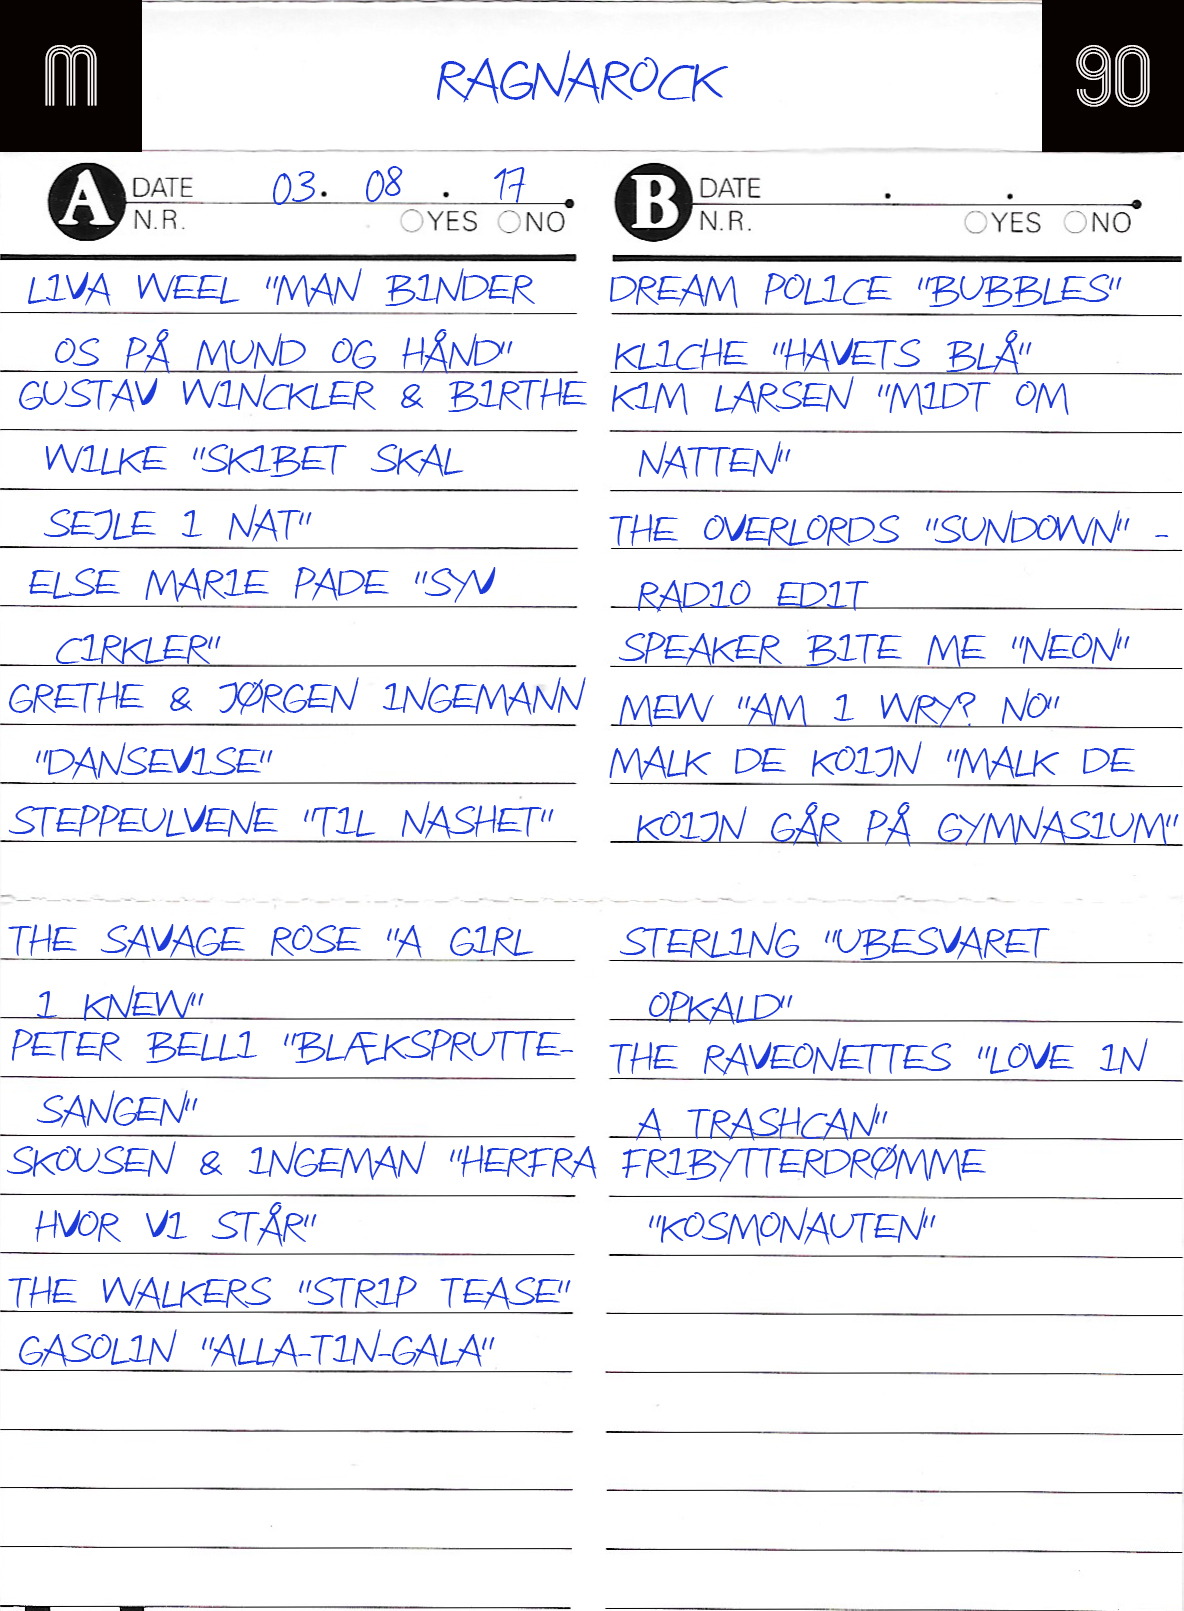 M
RAGNAROCK
90
A DATE 03. 08 . 17
N.R. YES NO
LIVA WEEL "MAN BINDER
OS PÅ MUND OG HÅND"
GUSTAV WINCKLER & BIRTHE
WILKE "SKIBET SKAL
SEJLE I NAT"
ELSE MARIE PADE "SYV
CIRKLER"
GRETHE & JØRGEN INGEMANN
"DANSEVISE"
STEPPEULVENE "TIL NASHET"
THE SAVAGE ROSE "A GIRL
I KNEW"
PETER BELLI "BLÆKSPRUTTE-
SANGEN"
SKOUSEN & INGEMAN "HERFRA
HVOR VI STÅR"
THE WALKERS "STRIP TEASE"
GASOLIN "ALLA-TIN-GALA"
B DATE . .
N.R. YES NO
DREAM POLICE "BUBBLES"
KLICHE "HAVETS BLÅ"
KIM LARSEN "MIDT OM
NATTEN"
THE OVERLORDS "SUNDOWN" -
RADIO EDIT
SPEAKER BITE ME "NEON"
MEW "AM I WRY? NO"
MALK DE KOIJN "MALK DE
KOIJN GÅR PÅ GYMNASIUM"
STERLING "UBESVARET
OPKALD"
THE RAVEONETTES "LOVE IN
A TRASHCAN"
FRIBYTTERDRØMME
"KOSMONAUTEN"